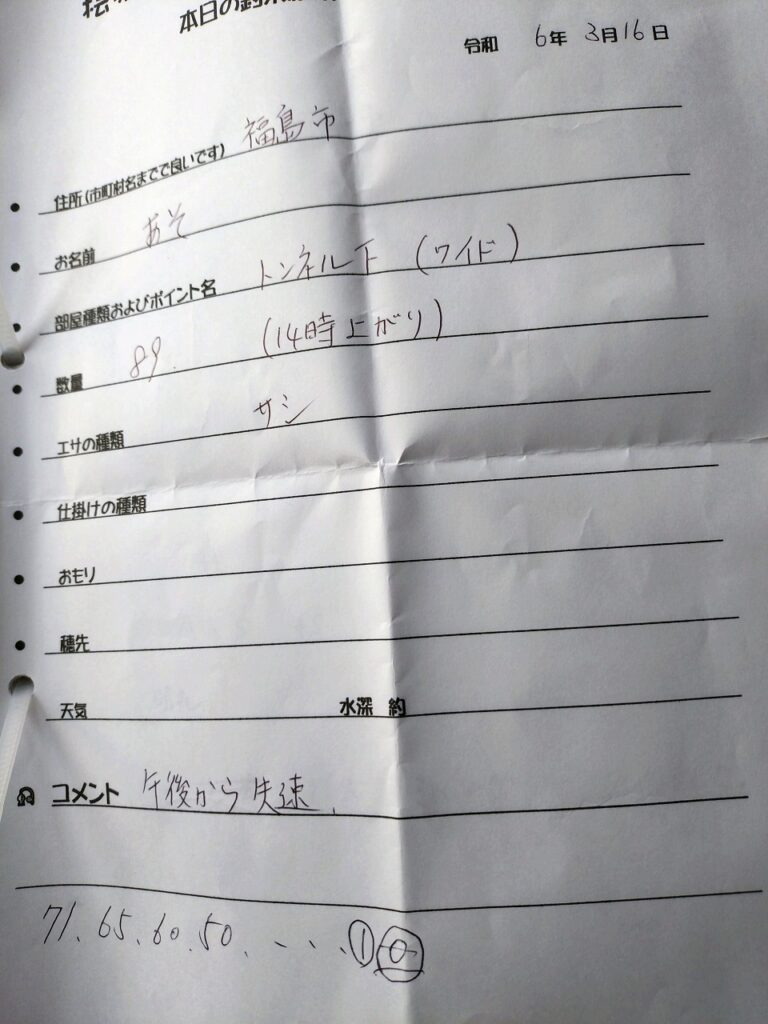 本日の釣果
令和 6年 3月16日
住所(市町村名までで良いです) 福島市
お名前 あそ
部屋種類およびポイント名 トンネル下 (ワイド)
数量 89. (14時上がり)
エサの種類 サシ
仕掛けの種類
おもり
穂先
天気 水深 約
コメント 午後から失速.
71. 65. 60. 50. . . . ① ⓪